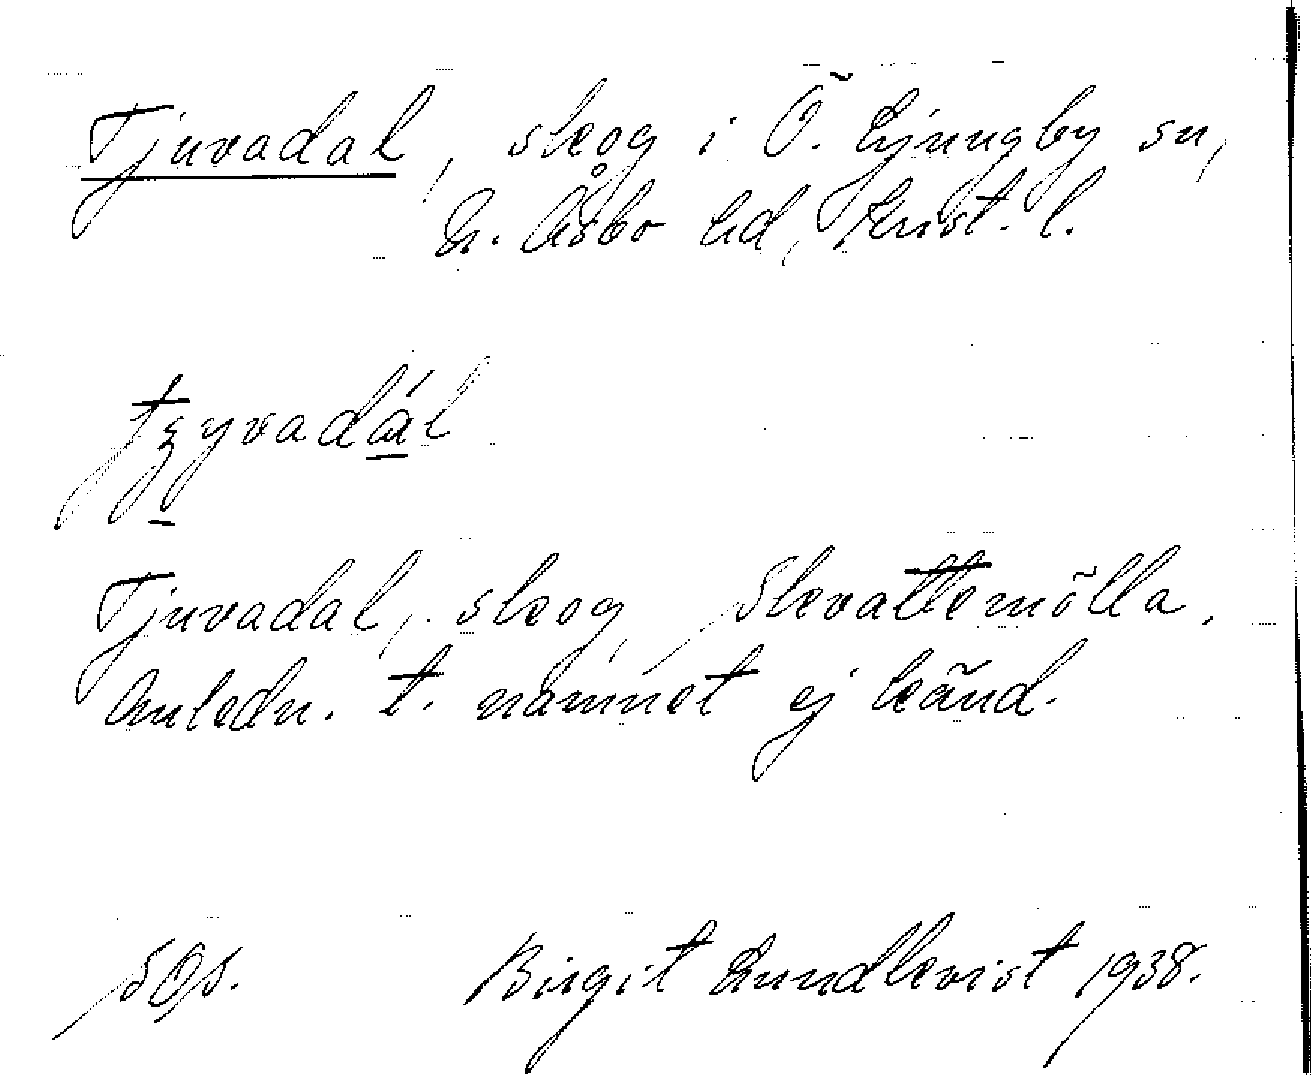 Tjuvadal, skog i Ö. Ljungby sn,
N. Åsbo hd, Krist. l.
tʒyvadál
Tjuvadal, skog, Skvattemölla.
Anledn. t. namnet ej känd.
Birgit Lundkvist 1938.